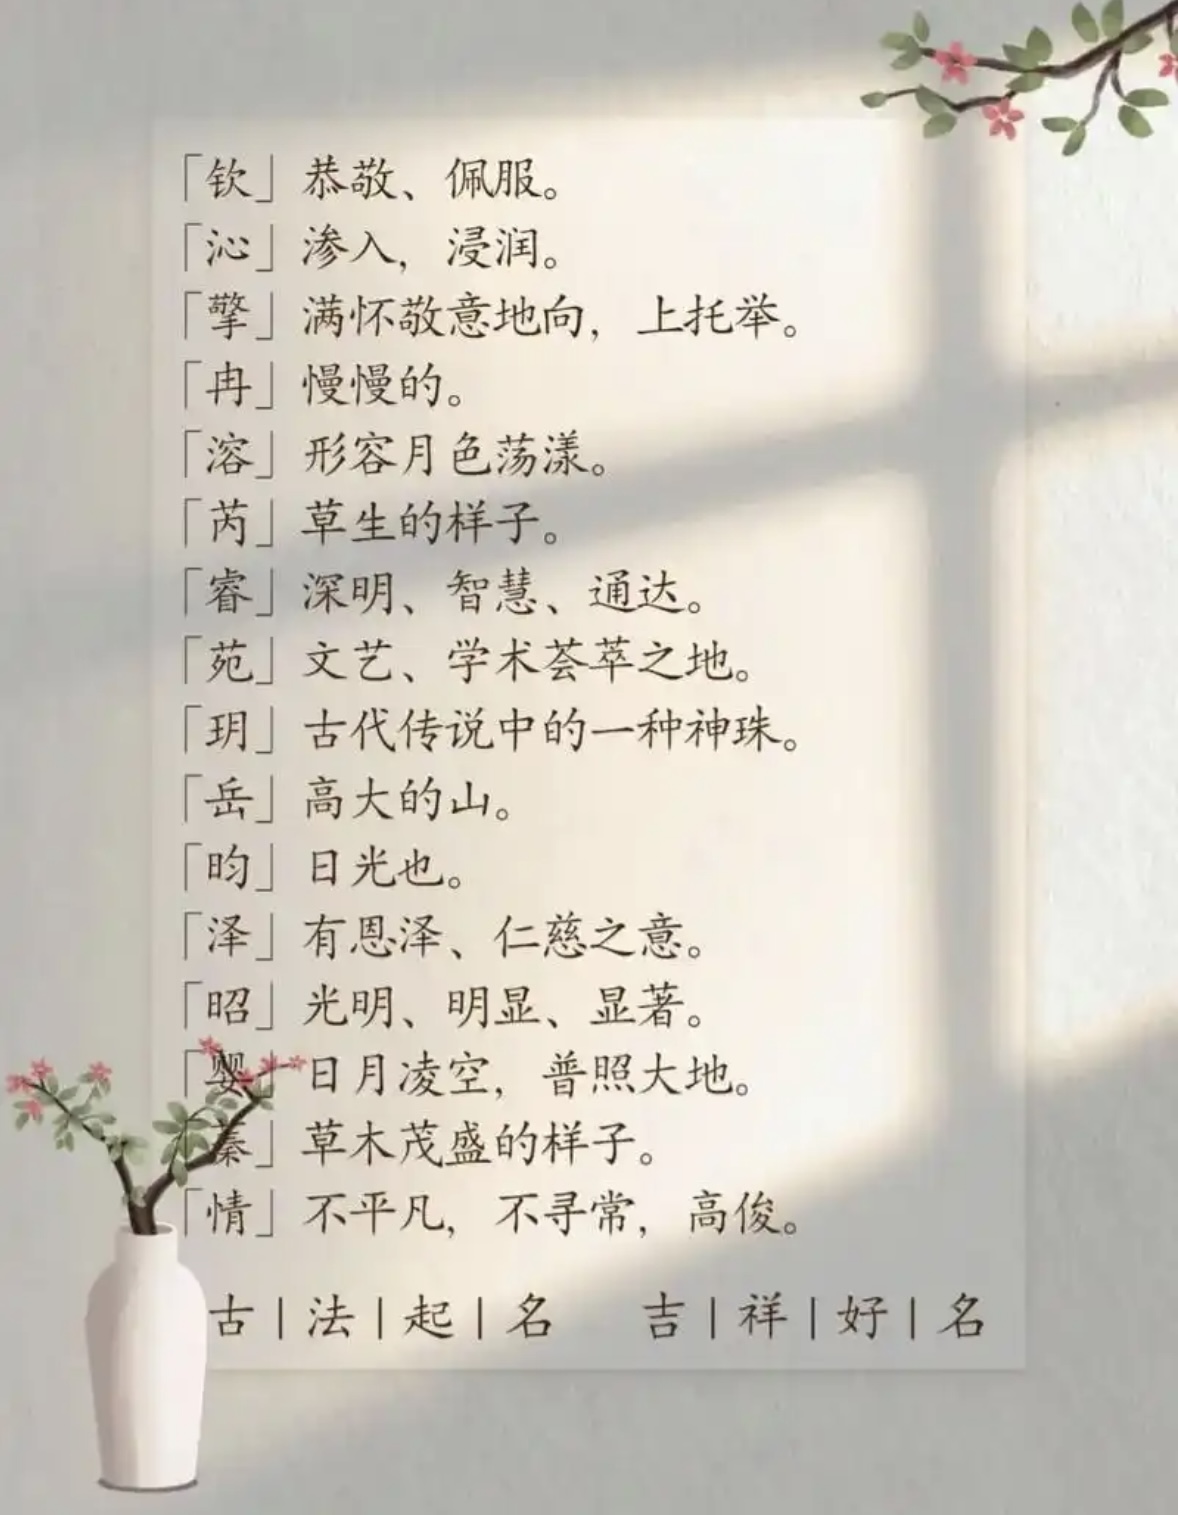 「钦」恭敬、佩服。
「沁」渗入，浸润。
「擎」满怀敬意地向，上托举。
「冉」慢慢的。
「溶」形容月色荡漾。
「芮」草生的样子。
「睿」深明、智慧、通达。
「苑」文艺、学术荟萃之地。
「玥」古代传说中的一种神珠。
「岳」高大的山。
「昀」日光也。
「泽」有恩泽、仁慈之意。
「昭」光明、明显、显著。
「婴」日月凌空，普照大地。
「蓁」草木茂盛的样子。
「情」不平凡，不寻常，高俊。
古|法|起|名 吉|祥|好|名